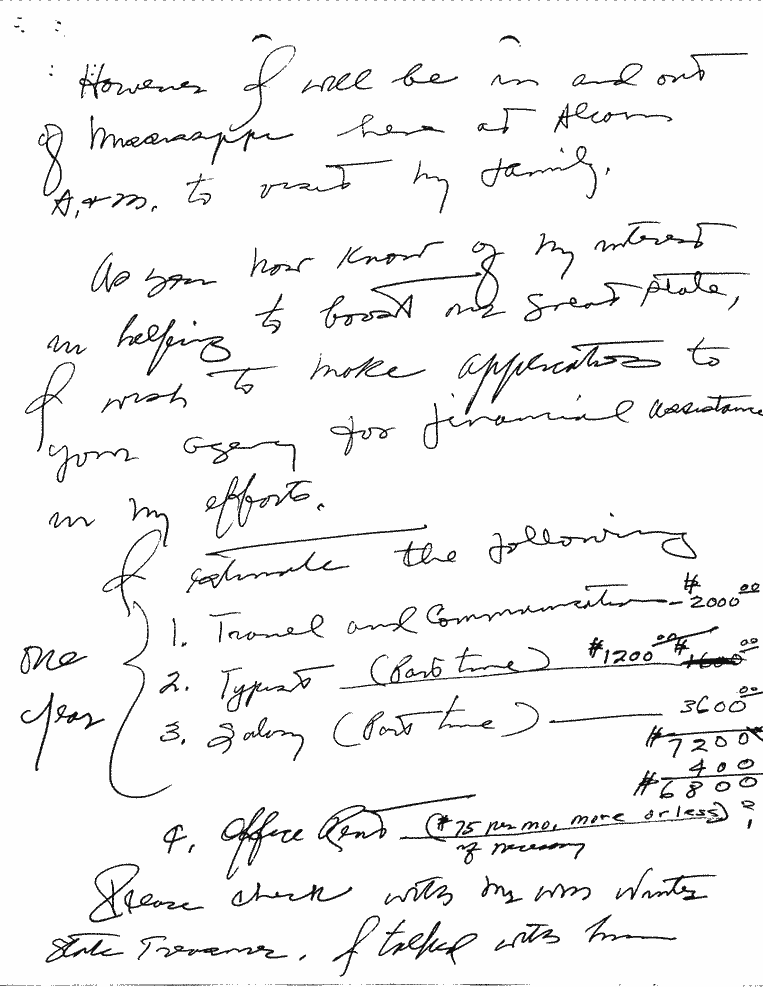 However I will be in and out
of Mississippi here at Alcorn
A.+M. to visit my family.
As you now know of my interest
in helping to boost our great state,
I wish to make application to
your agency for financial assistance
in my efforts.
I estimate the following
one year
1. Travel and Communication - $2000.00
2. Typist (Part time) $1200.00 $1600.00
3. Salary (Part time) 3600.00
$7200
400
$6800
4. Office Rent ($75 per mo, more or less) ?
if necessary
Please check with Mr Wm Winter
State Treasurer. I talked with him